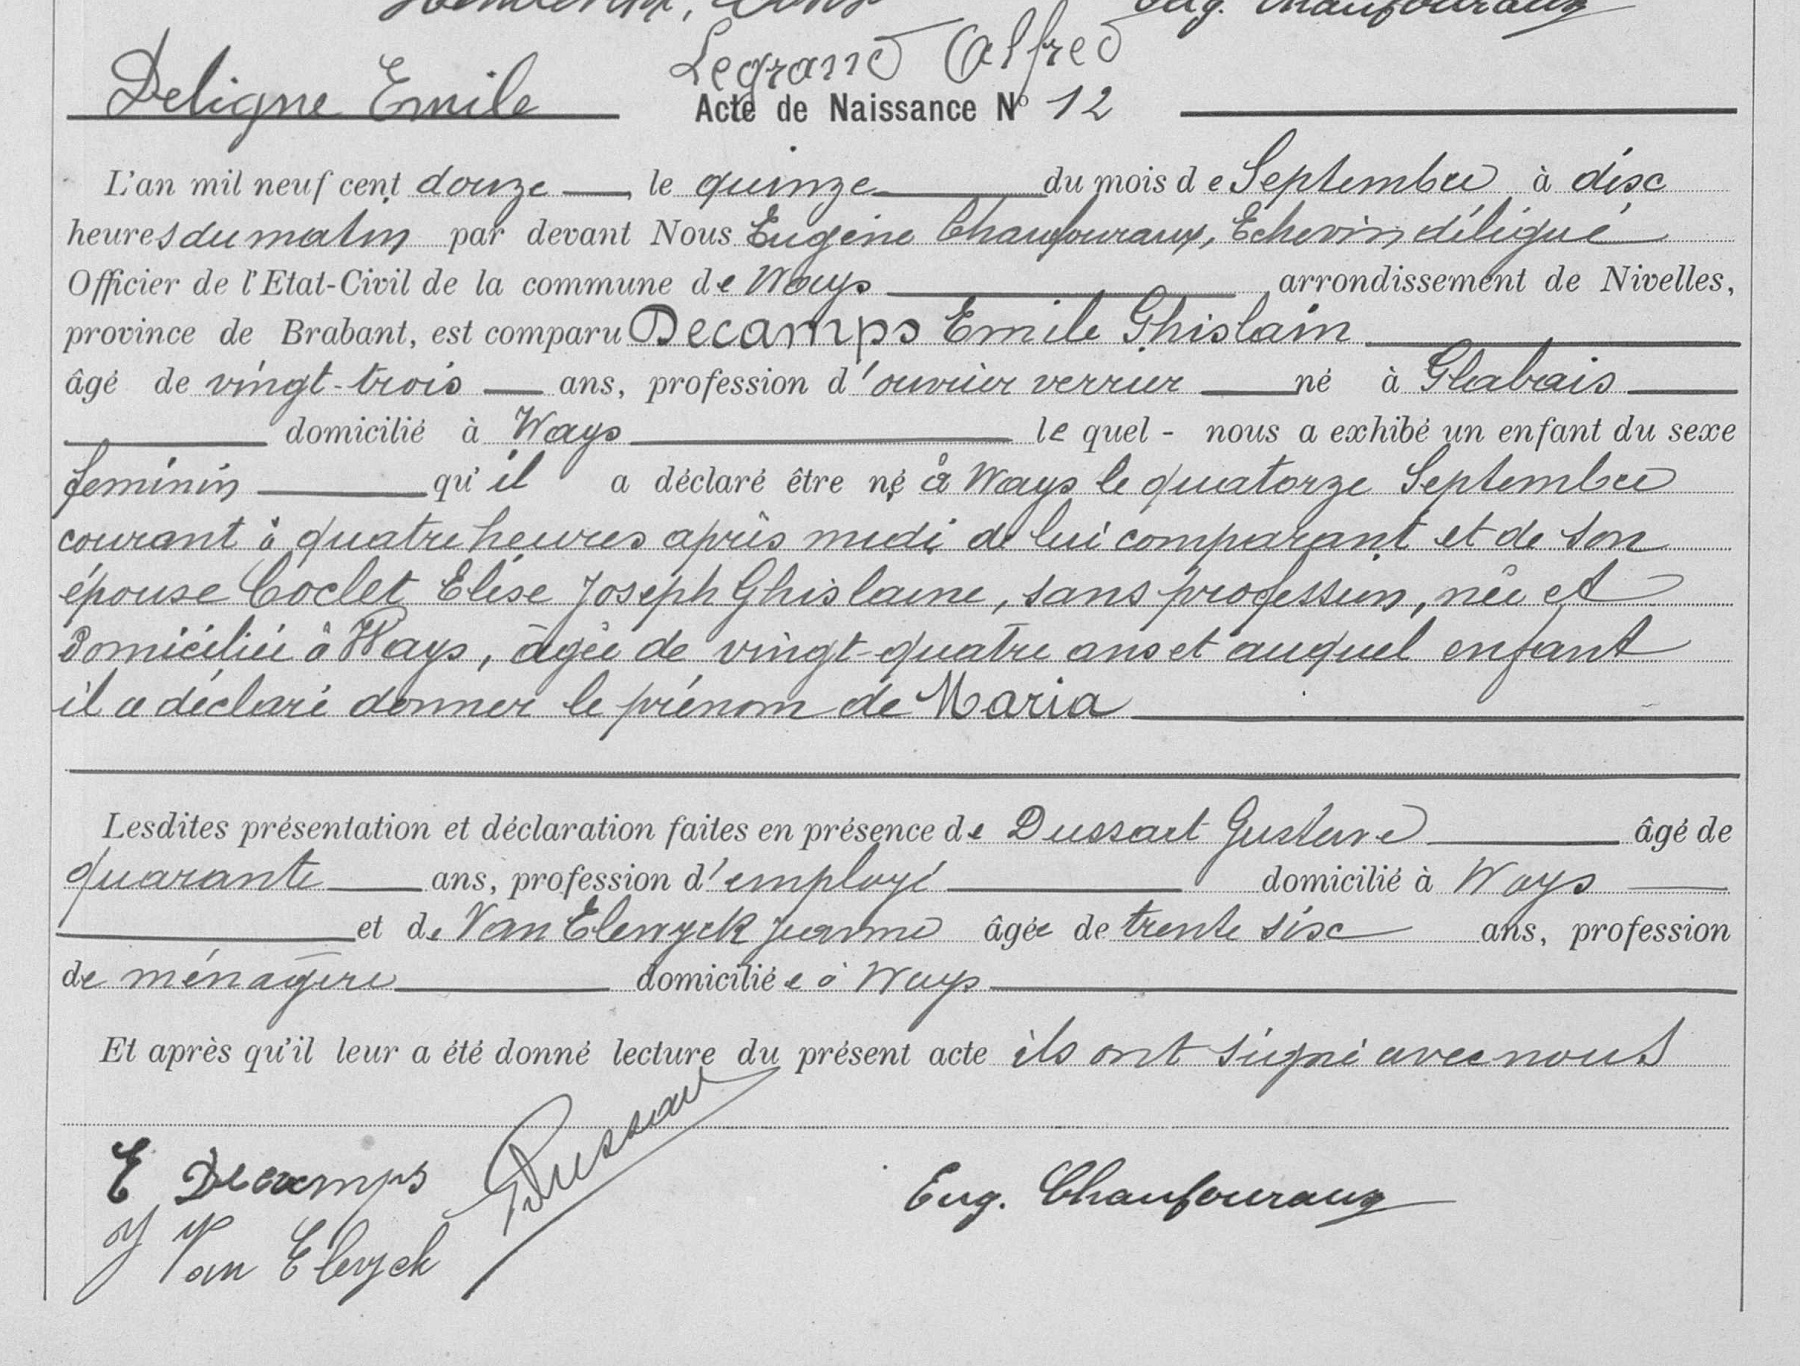 Eug. Chaufouraux
Legrand Alfred
Deligne Emile
Acte de Naissance No 12
L'an mil neuf cent douze, le quinze du mois de Septembre à dix
heures du matin par devant Nous Eugène Chaufouraux, Echevin délégué
Officier de l'Etat-Civil de la commune de Ways arrondissement de Nivelles,
province de Brabant, est comparu Decamps Emile Ghislain
âgé de vingt-trois ans, profession d'ouvrier verrier né à Glabais
domicilié à Ways lequel - nous a exhibé un enfant du sexe
féminin qu'il a déclaré être né à Ways le quatorze Septembre
courant à quatre heures après midi de lui comparant et de son
épouse Coclet Elise Joseph Ghislaine, sans profession, née et
Domiciliée à Ways, âgée de vingt-quatre ans et auquel enfant
il a déclaré donner le prénom de Maria
Lesdites présentation et déclaration faites en présence de Dussart Gustave âgé de
quarante ans, profession d'employé domicilié à Ways
et de Van Elewyck Jeanne âgée de trente six ans, profession
de ménagère domiciliée à Ways
Et après qu'il leur a été donné lecture du présent acte ils ont signé avec nous
E Decamps
GDussart
J Van Elewyck
Eug. Chaufouraux